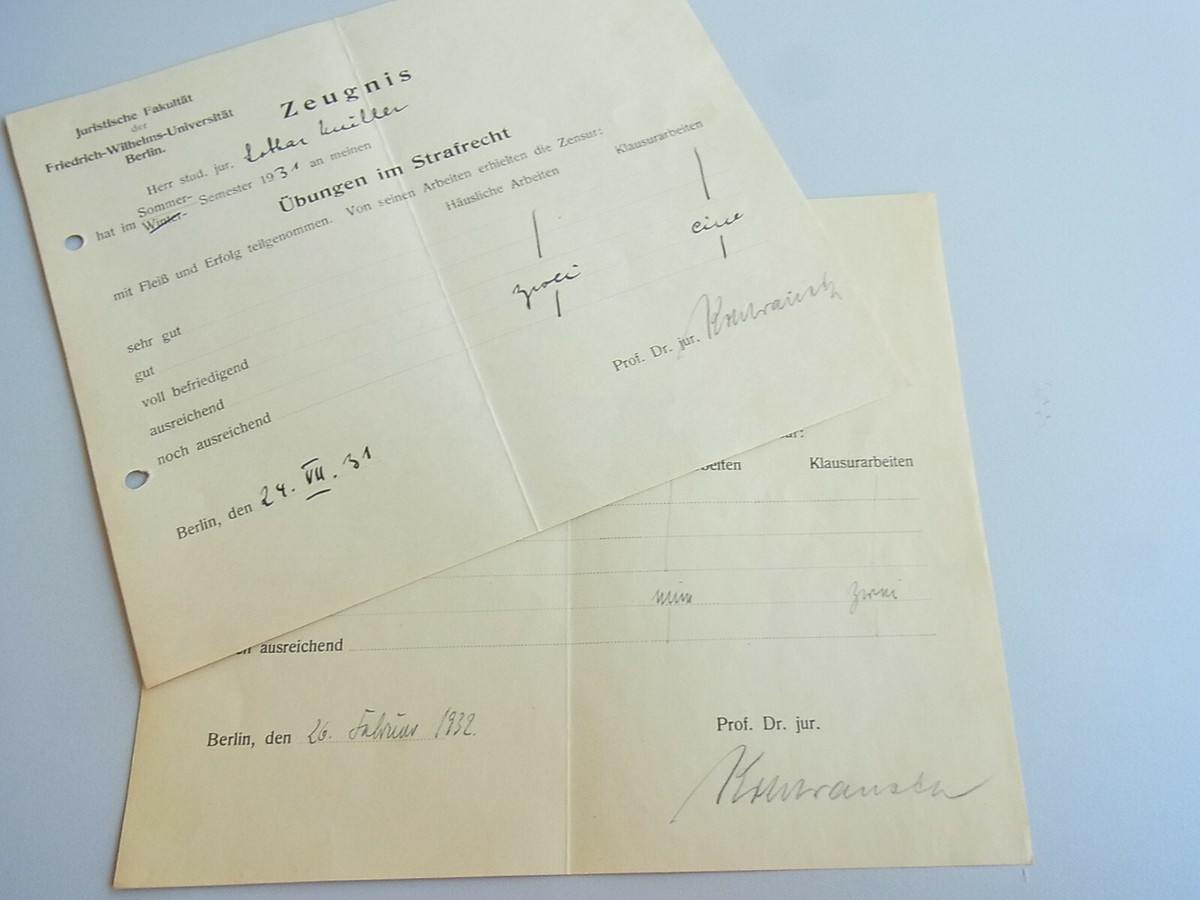 Juristische Fakultät
der
Friedrich-Wilhelms-Universität
Berlin.
Zeugnis
Herr stud. jur. Lothar Müller
hat im Sommer- Winter- Semester 1931 an meinen
Übungen im Strafrecht
mit Fleiß und Erfolg teilgenommen. Von seinen Arbeiten erhielten die Zensur:
Häusliche Arbeiten Klausurarbeiten
sehr gut
gut
voll befriedigend
ausreichend zwei eine
noch ausreichend
Berlin, den 24. VII. 31
Prof. Dr. jur. Kohlrausch
ur:
beiten Klausurarbeiten
eine zwei
ausreichend
Berlin, den 26. Februar 1932.
Prof. Dr. jur.
Kohlrausch